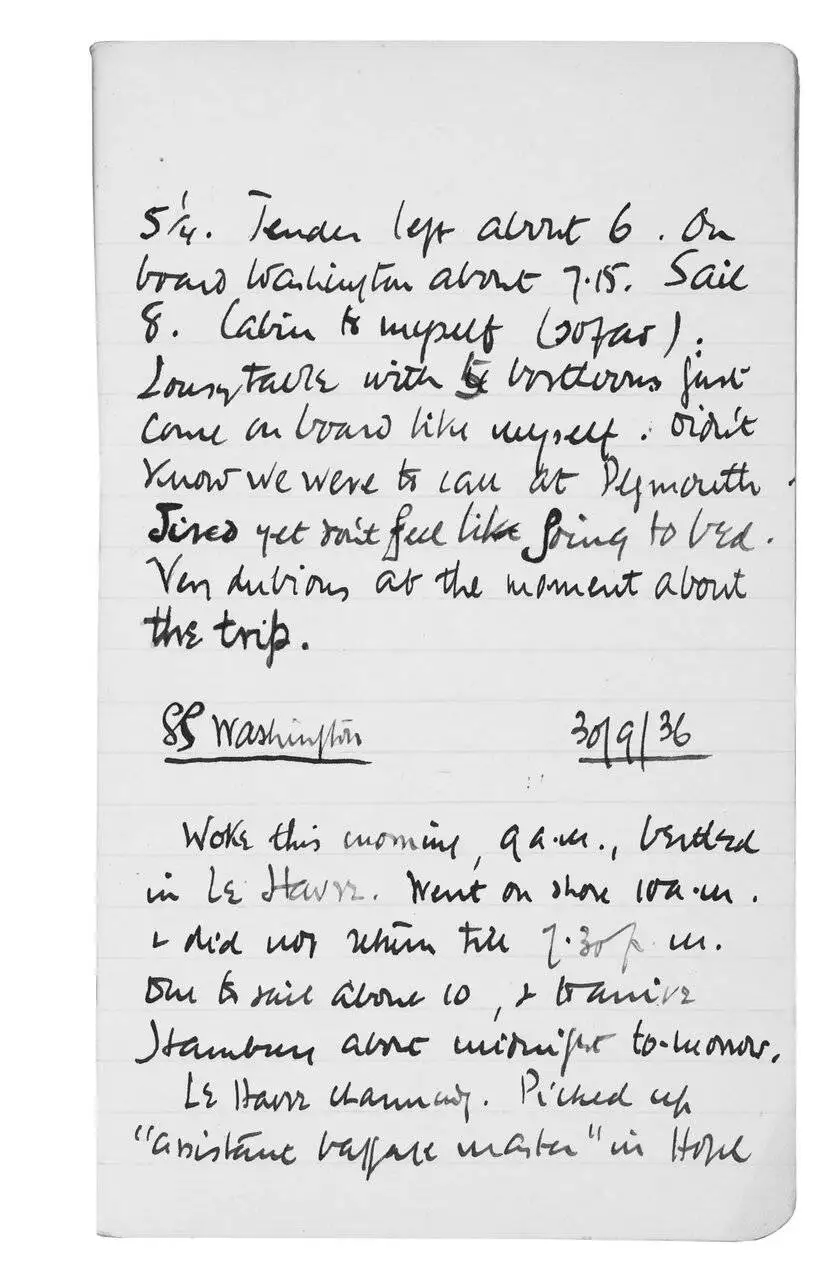 5¼. Tender left about 6. On
board Washington about 7.15. Sail
8. Cabin to myself (so far).
Lousy table with boisterous just
come on board like myself. Didn't
know we were to call at Plymouth.
Tired yet don't feel like going to bed.
Very dubious at the moment about
the trip.
SS Washington 30/9/36
Woke this morning, 9 a.m., berthed
in Le Havre. Went on shore 10 a.m.
& did not return till 7.30 p.m.
Due to sail about 10, & to arrive
Hamburg about midnight to-morrow.
Le Havre charming. Picked up
"assistant baggage master" in Hotel